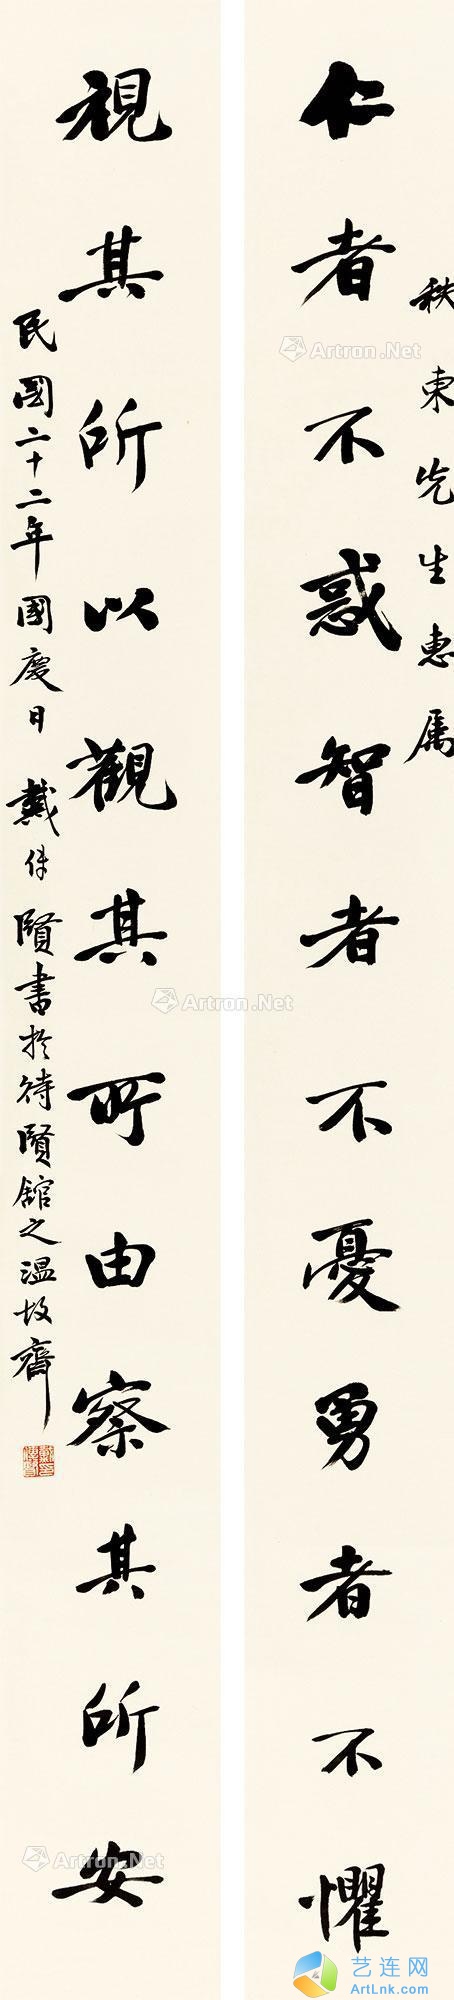 秩東先生惠属
仁者不惑智者不憂勇者不懼
視其所以觀其所由察其所安
民國二十二年國慶日戴傳賢書於待賢館之温故齋
Artron.Net
Artron.Net
Artron.Net
艺连网
ArtLink.com